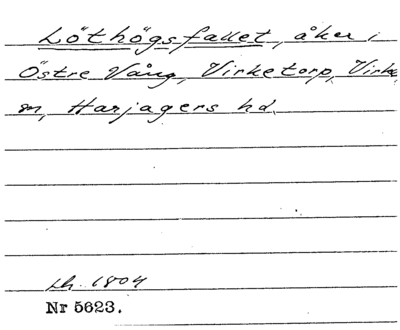 Löthögsfallet, åker i
Östre Vång, Virketorp, Virke
sn, Harjagers hd.
Lh. 1804
Nr 5623.